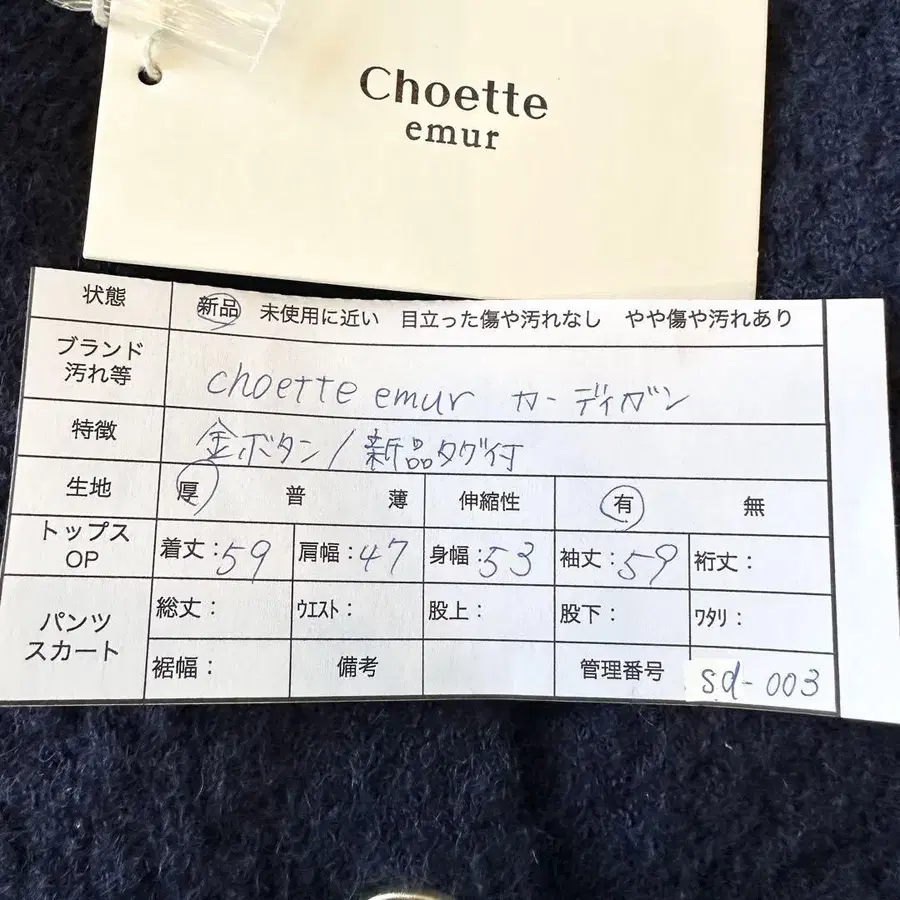 Choette
emur
状態 新品 未使用に近い 目立った傷や汚れなし やや傷や汚れあり
ブランド
汚れ等 choette emur カーディガン
特徴 金ボタン/新品タグ付
生地 厚 普 薄 伸縮性 有 無
トップス
OP 着丈:59 肩幅:47 身幅:53 袖丈:59 裄丈:
パンツ
スカート 総丈: ウエスト: 股上: 股下: ワタリ:
裾幅: 備考 管理番号 sd-003